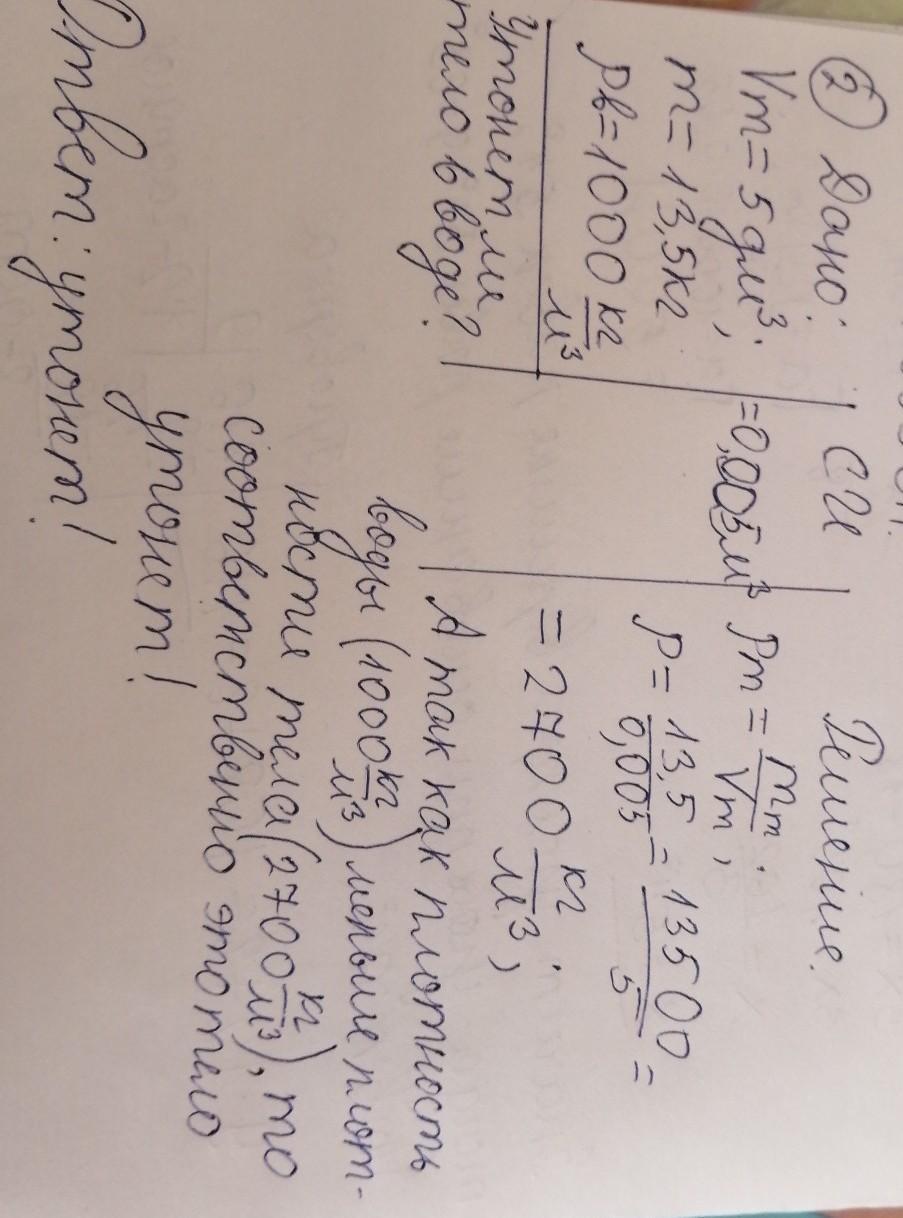 ② Дано:
Vт = 5 дм³;
m = 13,5 кг
ρв = 1000 кг/м³
Утонет ли
тело в воде?
СИ
= 0,005 м³
Решение.
ρт = mт/Vт;
ρ = 13,5/0,005 = 13500/5 =
= 2700 кг/м³;
А так как плотность
воды (1000 кг/м³) меньше плот-
ности тела (2700 кг/м³), то
соответственно это тело
утонет!
Ответ: утонет!